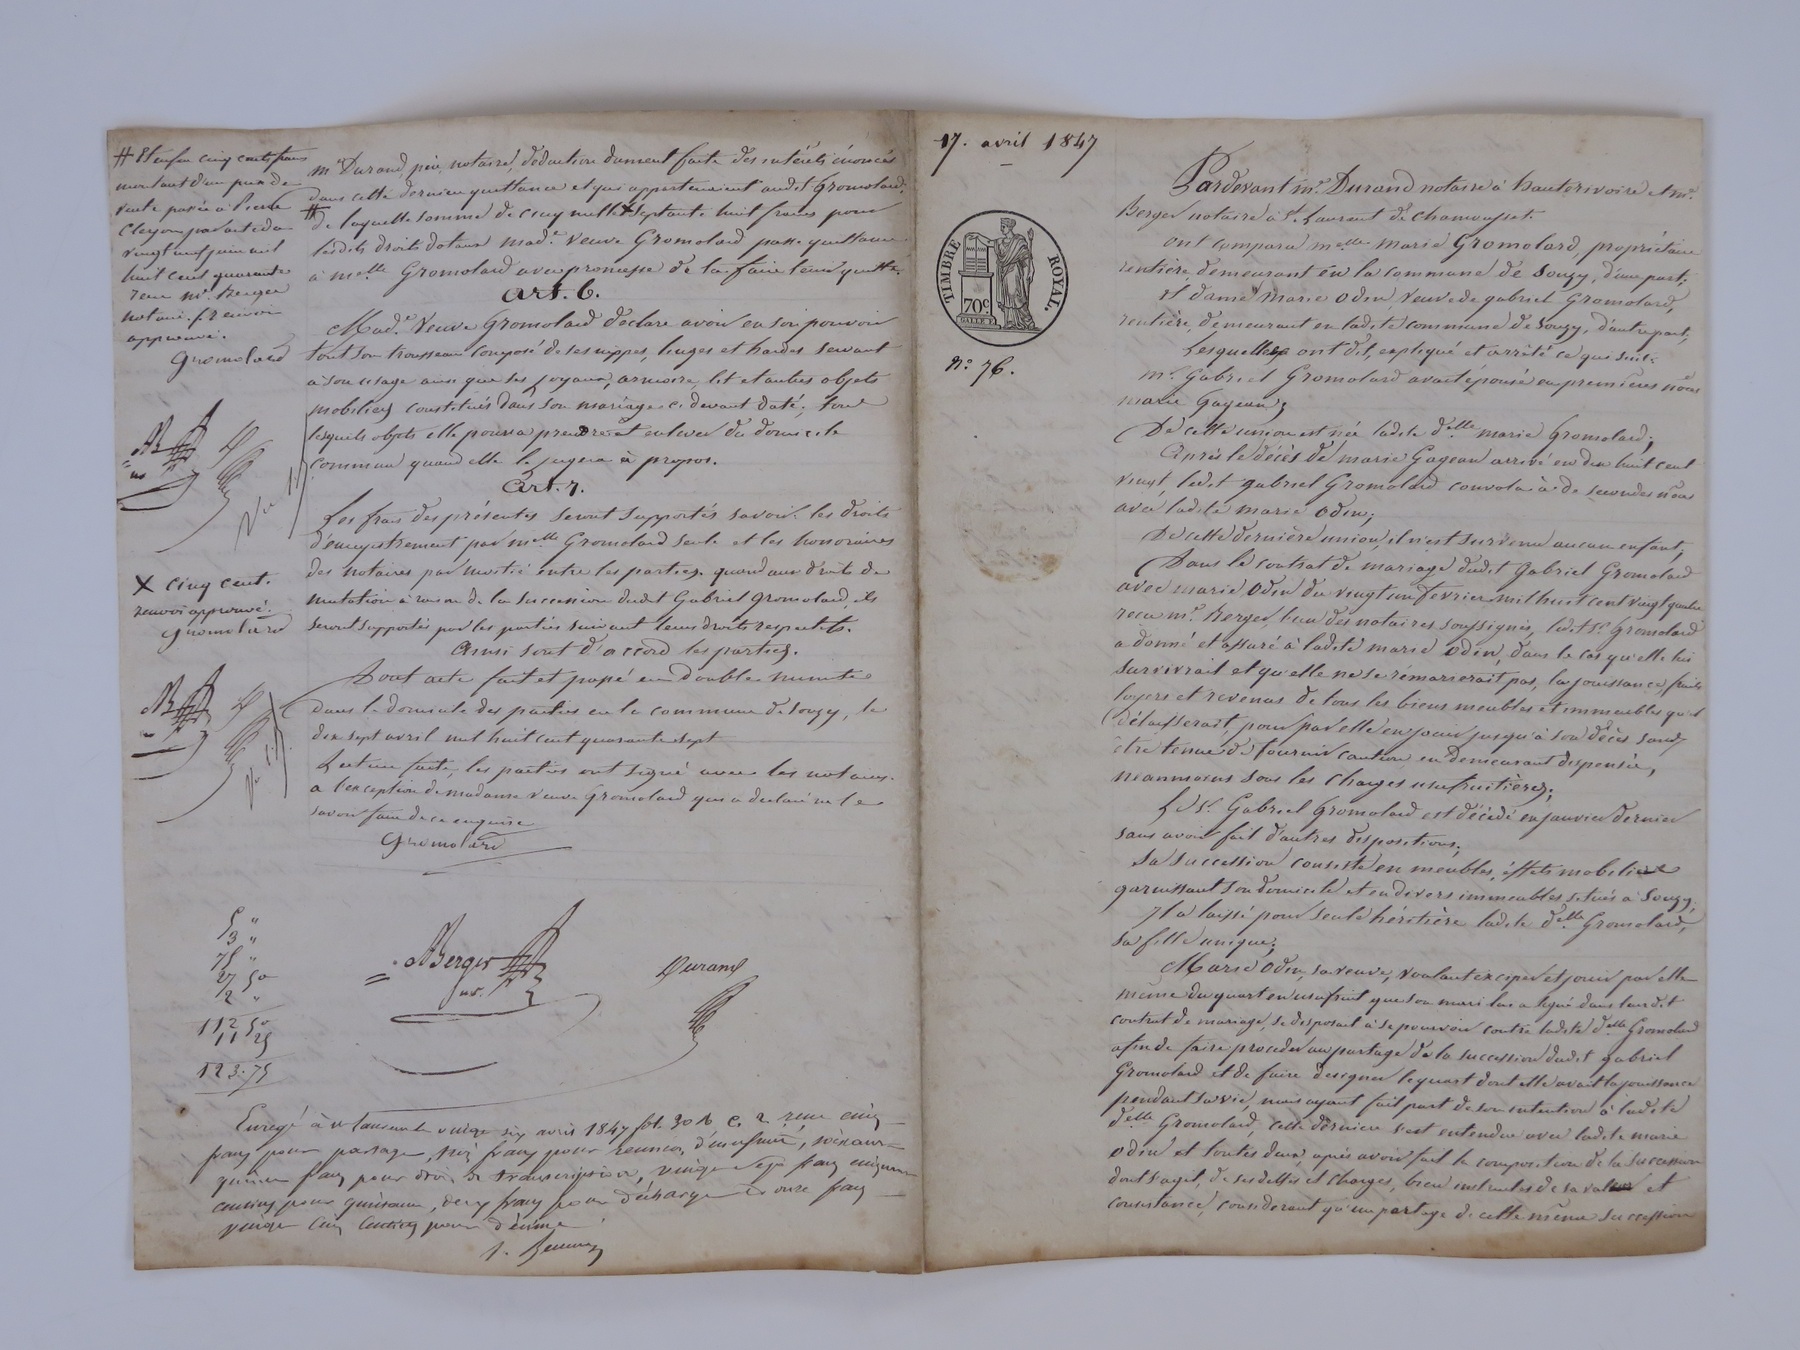 # Et enfin cinq cents francs
montant d'un prix de
vente passée à Pierre
Clezon par acte du
vingt neuf juin mil
huit cent quarante
reçu me. Berger
notaire. renvoi
approuvé.
Gromolard
X cinq cent.
renvoi approuvé.
Gromolard
me. Durand, père, notaire, déduction dument faite des intérêts énoncés
dans cette dernière quittance et qui appartenaient audit Gromolard.
# de laquelle somme de cinq mille X septante huit francs pour
lesdits droits dotaux made. veuve Gromolard passe quittance
à melle Gromolard avec promesse de la faire tenir quitte.
Art. 6.
Made. Veuve Gromolard déclare avoir en son pouvoir
tout son trousseau composé de ses nippes, linges et hardes servant
à son usage ainsi que ses joyaux, armoire, lit et autres objets
mobiliers constitués dans son mariage ci devant daté; tous
lesquels objets elle pourra prendre et enlever du domicile
commun quand elle le jugera à propos.
Art. 7.
Les frais des présentes seront supportés savoir les droits
d'enregistrement par melle Gromolard seule et les honoraires
des notaires par moitié entre les parties. quand aux droits de
mutation à raison de la succession dudit Gabriel Gromolard, ils
seront supportés par les parties suivant leurs droits respectifs.
Ainsi sont d'accord les parties.
Dont acte fait et passé en double minute
dans le domicile des parties en la commune de Souzy, le
dix sept avril mil huit cent quarante sept
Lecture faite, les parties ont signé avec les notaires.
a l'exception de madame veuve Gromolard qui a déclaré ne le
savoir faire de ce enquise
Gromolard
5 "
3 "
75 "
27 50
2 "
112 50
11 25
123.75
ABerger
nre.
Durand
Enregé à St Laurent le vingt six avril 1847 fol. 30 c. 2 reçu cinq
francs pour partage, trois francs pour réunion d'usufruit, soixante
quinze francs pour droit de transcription, vingt sept francs cinquante
centimes pour quittance, deux francs pour décharge et onze francs
vingt cinq centimes pour décime
17. avril 1847
TIMBRE ROYAL.
70c
No. 76.
Pardevant me. Durand notaire à hauterivoire et me.
Berger notaire à St. Laurent de Chamousset.
ont comparu melle marie Gromolard, propriétaire
rentière, demeurant en la commune de Souzy, d'une part;
Et dame Marie Odin veuve de gabriel Gromolard,
rentière, demeurant en ladite commune de Souzy, d'autre part,
Lesquelles ont dit, expliqué et arrêté ce qui suit:
mr. Gabriel Gromolard avait épousé en premières noces
marie Gageau;
De cette union est née ladite delle marie Gromolard;
Après le décès de marie Gageau arrivé en dix huit cent
vingt, ledit gabriel Gromolard convola à de secondes noces
avec ladite marie Odin;
De cette dernière union, il n'est survenu aucun enfant;
Dans le contrat de mariage dudit gabriel Gromolard
avec marie Odin du vingt un février mil huit cent vingt quatre
reçu me. Berger, l'un des notaires soussignés, ledit sr. Gromolard
a donné et assuré à ladite marie Odin, dans le cas qu'elle lui
survivrait et qu'elle ne se rémarierait pas, la jouissance, fruits
loyers et revenus de tous les biens meubles et immeubles qu'il
délaisserait, pour par elle en jouir jusqu'à son décès sans
être tenue de fournir caution en demeurant dispensée,
néanmoins sous les charges usufruitières;
Le sr. Gabriel Gromolard est décédé en janvier dernier
sans avoir fait d'autres dispositions;
Sa succession consiste en meubles, effets mobiliers
garnissant son domicile et en divers immeubles situés à Souzy;
Il a laissé pour seule héritière ladite delle. Gromolard,
sa fille unique;
Marie Odin, sa veuve, voulant exciper et jouir par elle
même du quart en usufruit que son mari lui a légué dans leur dit
contrat de mariage, se disposait à se pourvoir contre ladite delle Gromolard
afin de faire procéder au partage de la succession dudit gabriel
Gromolard et de faire désigner le quart dont elle avait la jouissance
pendant sa vie, mais ayant fait part de son intention à ladite
delle Gromolard, cette dernière s'est entendue avec ladite marie
Odin et toutes deux, après avoir fait la composition de la succession
dont s'agit, de ses dettes et charges, bien instruites de sa valeur et
consistance, considérant qu'un partage de cette même succession